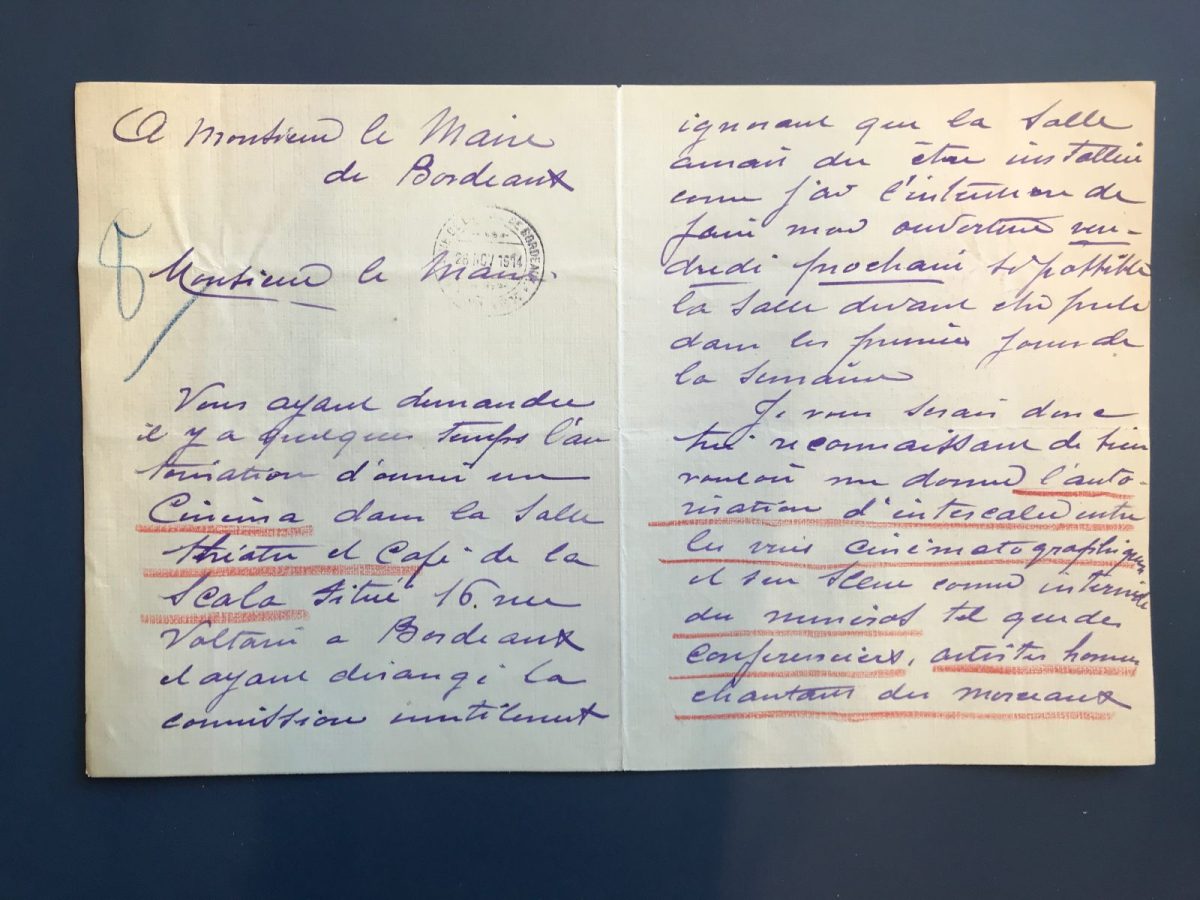 A Monsieur le Maire
de Bordeaux
28 NOV 1914
DE BORDEAUX
8
Monsieur le Maire
Vous ayant demandee
il y a quelques temps l'au
torisation d'ouvrir un
Cinéma dans la Salle
théatre et Café de la
Scala Situé 16. rue
Voltaire a Bordeaux
et ayant derangé la
comission inutilement
ignorant que la Salle
aurait du être installée
come j'ai l'intention de
faire mon ouverture ven-
dredi prochain si possible
la Salle devant etre prete
dans les premiers jours de
la Semaine
Je vous serais donc
très reconnaissant de bien
vouloir me donner l'auto-
risation d'intercaler entre
les vues cinématographiques
et sur Scene come intermède
des numeros tel que des
conferenciers, artistes hommes
chantant des morceaux